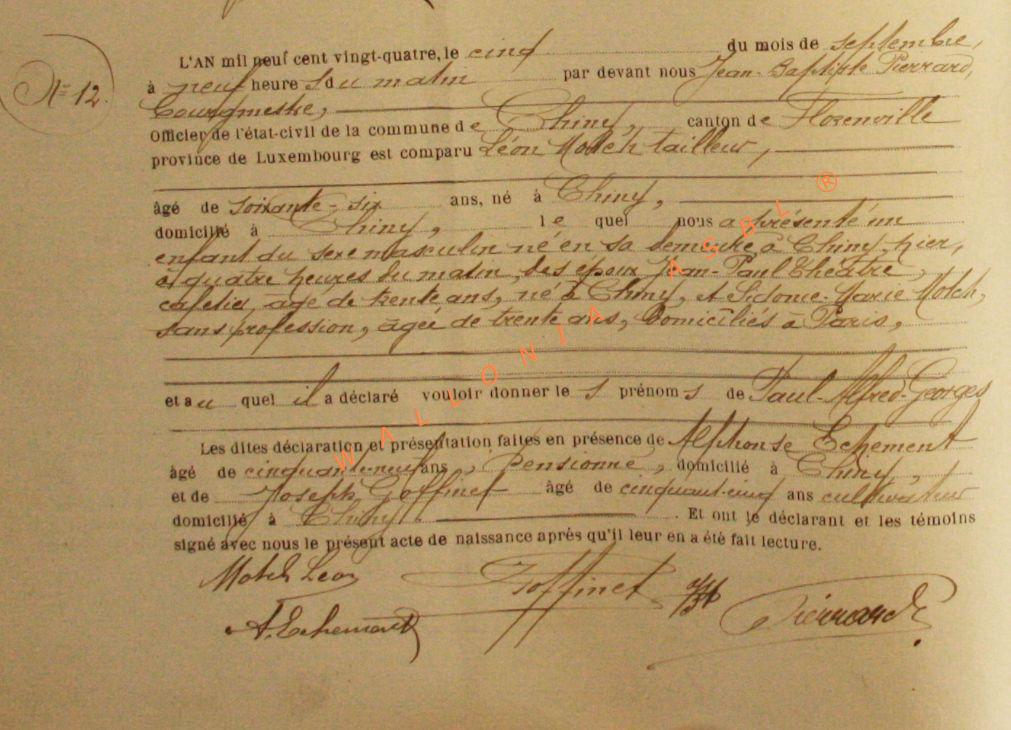 L'AN mil neuf cent vingt-quatre, le cinq du mois de septembre,
N° 12.
à neuf heures du matin par devant nous Jean-Baptiste Pierrard,
Bourgmestre,
Officier de l'état-civil de la commune de Chiny, canton de Florenville
province de Luxembourg est comparu Léon Motch tailleur,
âgé de soixante-six ans, né à Chiny,
domicilié à Chiny, lequel nous a présenté un
enfant du sexe masculin né en sa demeure à Chiny, hier,
à quatre heures du matin, des époux Jean-Paul Théâtre,
cafetier, âgé de trente ans, né à Chiny, et Sidonie-Marie Motch,
sans profession, âgée de trente ans, domiciliés à Paris,
et auquel il a déclaré vouloir donner les prénoms de Paul-Alfred-Georges
Les dites déclaration et présentation faites en présence de Alphonse Echement
âgé de cinquante-neuf ans, pensionné, domicilié à Chiny,
et de Joseph Goffinet âgé de cinquant-cinq ans cultivateur
domicilié à Chiny. Et ont le déclarant et les témoins
signé avec nous le présent acte de naissance après qu'il leur en a été fait lecture.
Motch Léon Goffinet Pierrard
A. Echement
WALLONIA ASBL ®